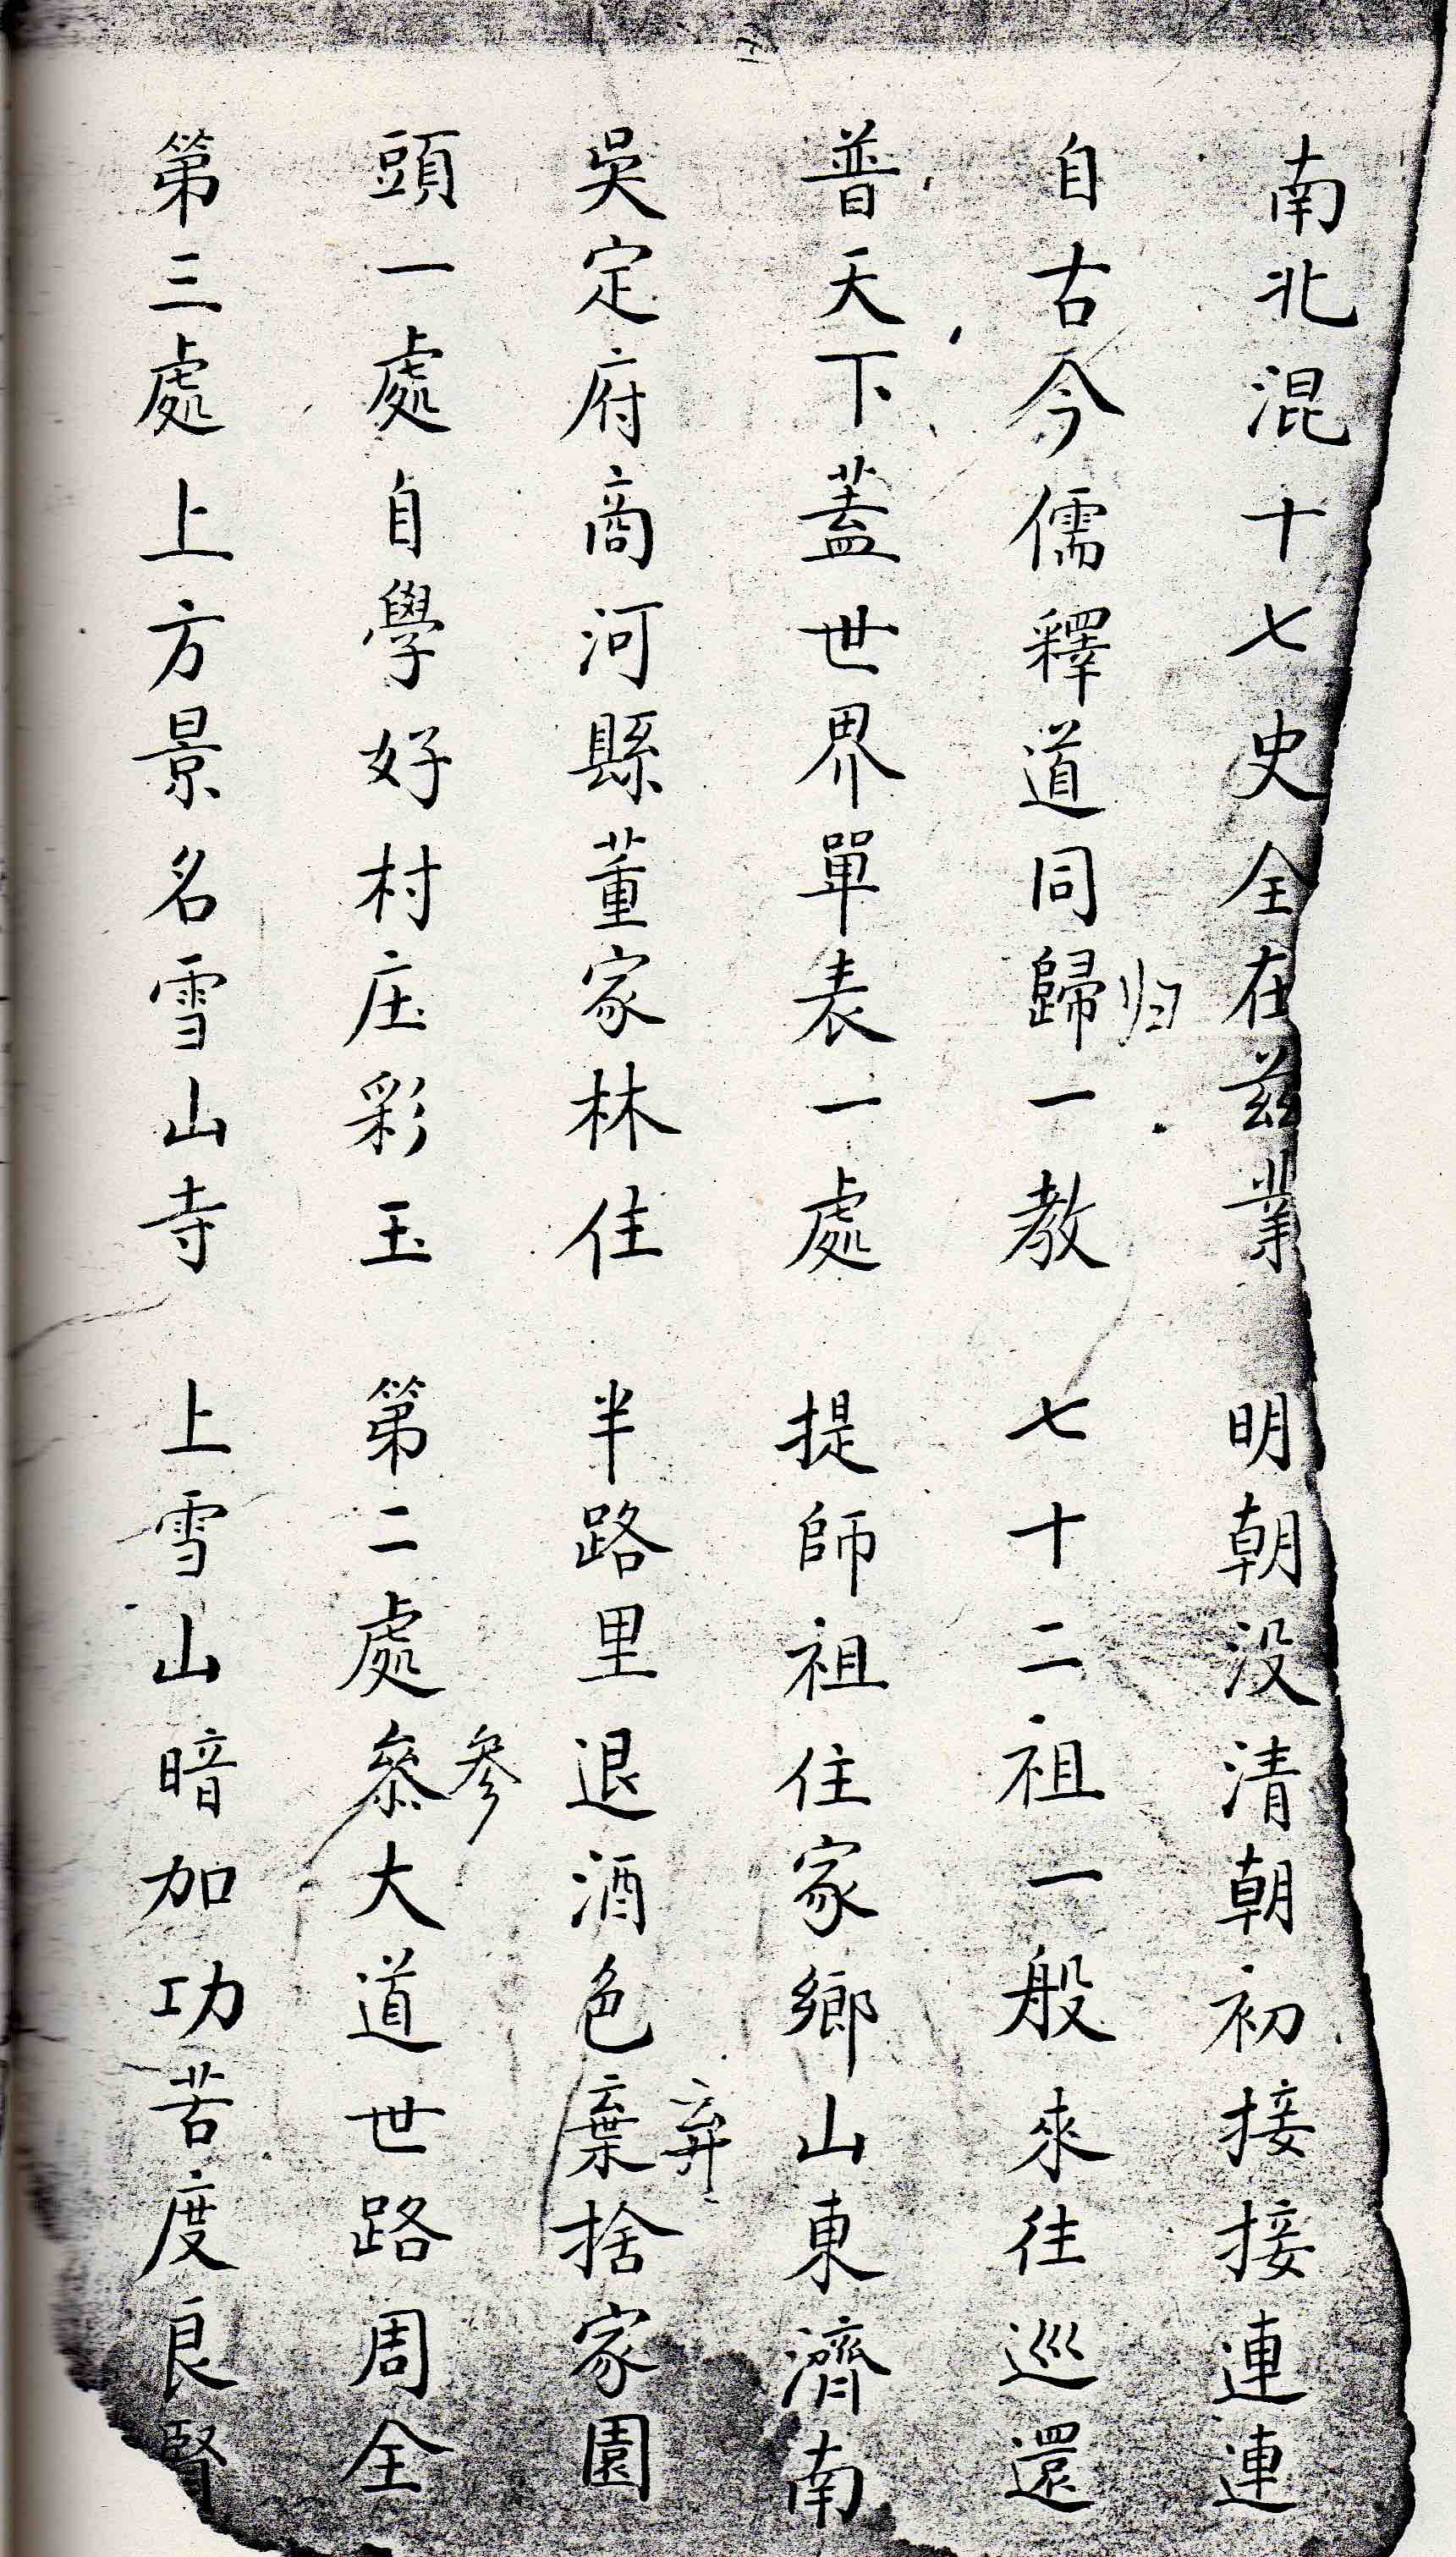 南北混十七史全在茲業　明朝没清朝初接接連連
自古今儒釋道同歸一教　七十二祖一般來往巡還
归
普天下蓋世界單表一處　提師祖住家鄉山東濟南
吳定府商河縣董家林住　半路里退酒色棄捨家園
弃
頭一處自學好村庄彩玉　第二處叅大道世路周全
参
第三處上方景名雪山寺　上雪山暗加功苦度良賢